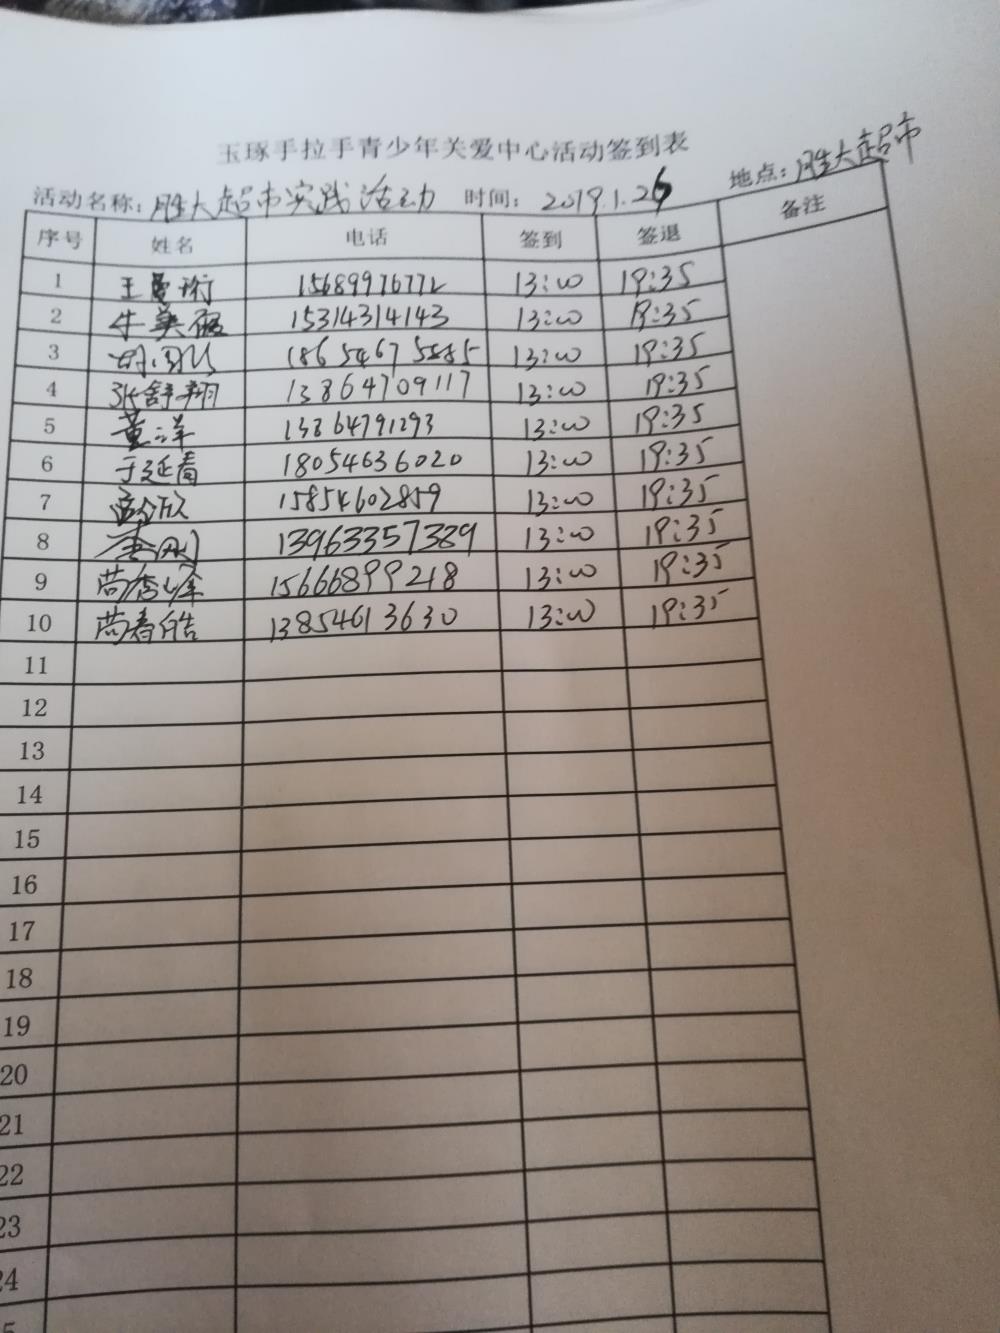 玉琢手拉手青少年关爱中心活动签到表
活动名称: 胜大超市实践活动 时间: 2019.1.26 地点: 胜大超市
序号 姓名 电话 签到 签退 备注
1 王曼珩 15689976772 13:00 19:35
2 牛美丽 15314314143 13:00 19:35
3 13:00 19:35
4 张舒翔 13864709117 13:00 19:35
5 董洋 13864791293 13:00 19:35
6 于延春 18054636020 13:00 19:35
7 15854602859 13:00 19:35
8 13963357389 13:00 19:35
9 15666899218 13:00 19:35
10 尚春皓 13854613630 13:00 19:35
11
12
13
14
15
16
17
18
19
20
21
22
23
24